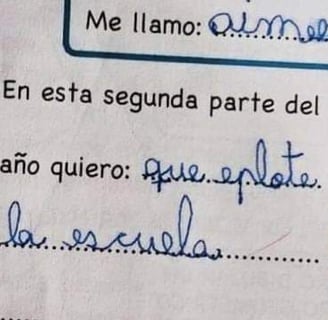 Me llamo: aimee
En esta segunda parte del
año quiero: que eplote
la escuela